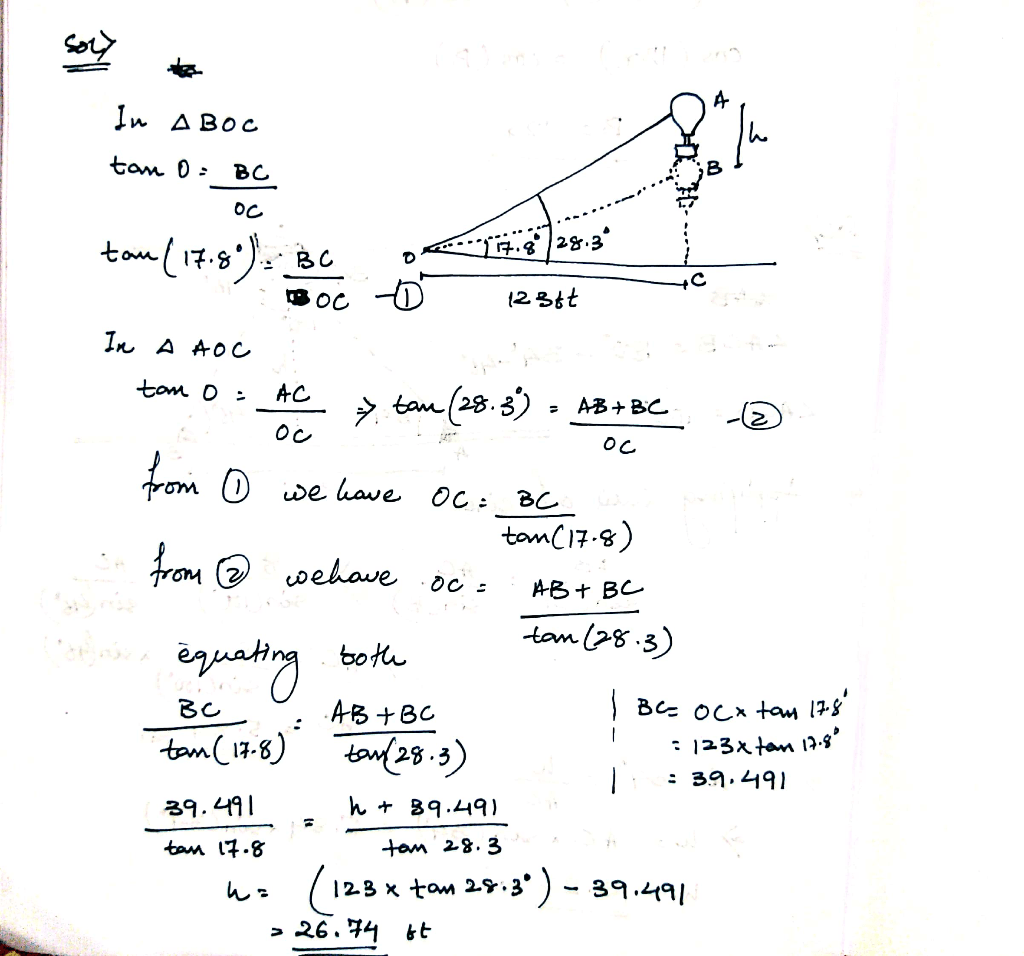 Sol>
In △ BOC
tan O = BC / OC
tan(17.8°) = BC / OC -①
A
h
B
O
17.8°
28.3°
C
123ft
In △ AOC
tan O = AC / OC ⇒ tan(28.3°) = AB + BC / OC -②
from ① we have OC = BC / tan(17.8)
from ② we have OC = AB + BC / tan(28.3)
equating both
BC / tan(17.8) = AB + BC / tan(28.3)
BC = OC x tan 17.8°
= 123 x tan 17.8°
= 39.491
39.491 / tan 17.8 = h + 39.491 / tan 28.3
h = (123 x tan 28.3°) - 39.491
= 26.74 ft